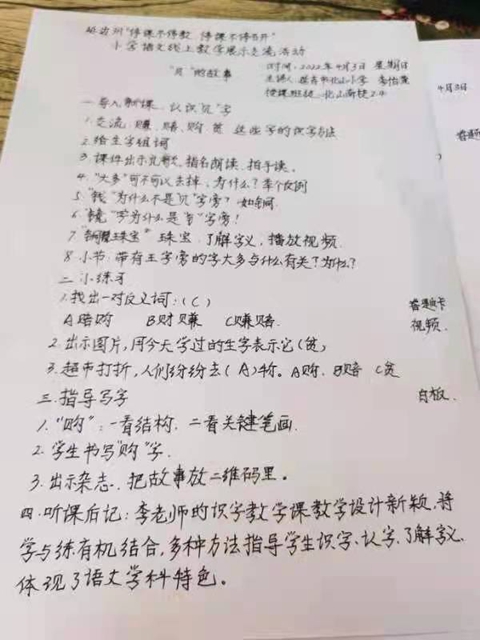 延边州"停课不停教 停课不停研"
小学语文线上教学展示交流活动
"贝"的故事
时间:2022年4月3日 星期日
主讲人:
授课班级:北山
4月3日
一导入新课、认识"贝"字
1.交流:赚、赔、购 贫 这些字的识字方法
2.给生字组词
3.课件出示儿歌、指名朗读、拍手读。
4."大多"可不可以去掉,为什么?举个例
5."钱"为什么不是"贝"字旁?
6.为什么是 字旁?
7. 珠宝" 珠宝、了解字义,播放视频.
8.小节:带有王字旁的字大多与什么有关?为什么?
二 小练习
1.找出一对反义词:(C) 答题卡
A赔购 B财赚 C赚赔. 视频.
2.出示图片,用今天学过的生字表示它(贫)
3.超市打折,人们纷纷去(A)物。A购、B赔 C贫
三.指导写字 白板.
1."购":一看结构、二看关键笔画.
2.学生书写"购"字.
3.出示杂志、把故事放二维码里。
四.听课后记:李老师的识字教学课教学设计新颖,将
学与练有机结合,多种方法指导学生识字、认字、了解字义、
体现了语文学科特色。